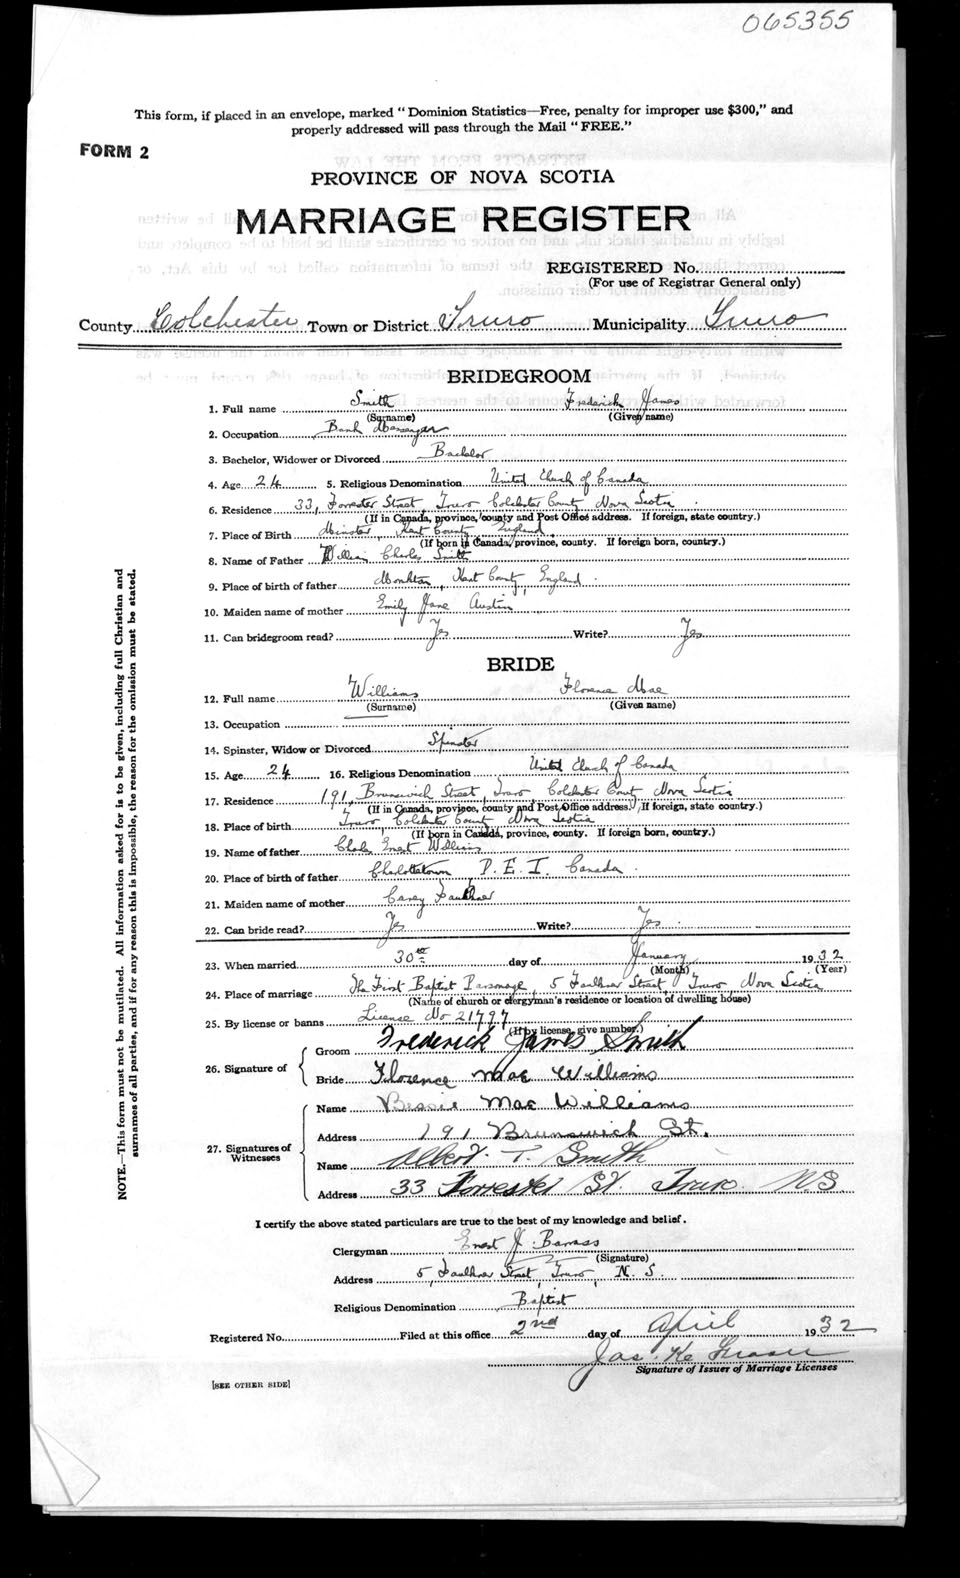 065355
This form, if placed in an envelope, marked "Dominion Statistics—Free, penalty for improper use $300," and
properly addressed will pass through the Mail "FREE."
FORM 2
PROVINCE OF NOVA SCOTIA
MARRIAGE REGISTER
REGISTERED No.
(For use of Registrar General only)
County Colchester Town or District Truro Municipality Truro
BRIDEGROOM
1. Full name Smith Frederick James
(Surname) (Given name)
2. Occupation Bank Messenger
3. Bachelor, Widower or Divorced Bachelor
4. Age 24 5. Religious Denomination United Church of Canada
6. Residence 33, Forrester Street, Truro Colchester County Nova Scotia
(If in Canada, province, county and Post Office address. If foreign, state country.)
7. Place of Birth Minster, Kent County, England.
(If born in Canada, province, county. If foreign born, country.)
8. Name of Father William Charles Smith
9. Place of birth of father Monkton, Kent County, England.
10. Maiden name of mother Emily Jane Austin
11. Can bridegroom read? Yes Write? Yes
BRIDE
12. Full name Williams Florence Mae
(Surname) (Given name)
13. Occupation
14. Spinster, Widow or Divorced Spinster
15. Age 24 16. Religious Denomination United Church of Canada
17. Residence 191, Brunswich Street, Truro Colchester County Nova Scotia
(If in Canada, province, county and Post Office address. If foreign, state country.)
18. Place of birth Truro Colchester County Nova Scotia
(If born in Canada, province, county. If foreign born, country.)
19. Name of father Charles Ernest Williams
20. Place of birth of father Charlottetown, P.E.I. Canada.
21. Maiden name of mother Faulkner
22. Can bride read? Yes Write? Yes
23. When married 30th day of January 1932
(Month) (Year)
24. Place of marriage The First Baptist Parsonage, 5 Faulkner Street, Truro, Nova Scotia
(Name of church or clergyman's residence or location of dwelling house)
25. By license or banns License No 21797
(If by license, give number.)
26. Signature of Groom Frederick James Smith
Bride Florence Mae Williams
27. Signatures of Witnesses
Name Bessie Mae Williams
Address 191 Brunswick St.
Name Albert T. Smith
Address 33 Forrester St. Truro N.S.
I certify the above stated particulars are true to the best of my knowledge and belief.
Clergyman Ernest J. Barrass
(Signature)
Address 5, Faulkner Street, Truro, N.S.
Religious Denomination Baptist
Registered No. Filed at this office 2nd day of April 1932
Jas. K. Fraser
Signature of Issuer of Marriage Licenses
[SEE OTHER SIDE]
NOTE.—This form must not be mutilated. All information asked for is to be given, including full Christian and
surnames of all parties, and if for any reason this is impossible, the reason for the omission must be stated.